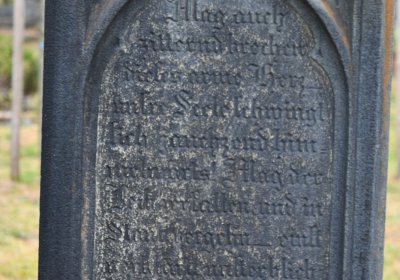 Mag auch
zitternd brechen
dieses arme Herz
Seele schwingt
sich jauchzend him-
melwärts Mag der
Leib zerfallen, und in
Staub vergehn einst